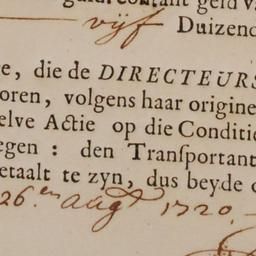 contant geld v
vijf Duizend
e, die de DIRECTEURS
oren, volgens haar origine
elve Actie op die Conditie
egen : den Tranſportant
etaalt te zyn, dus beyde
26.en augt 1720.